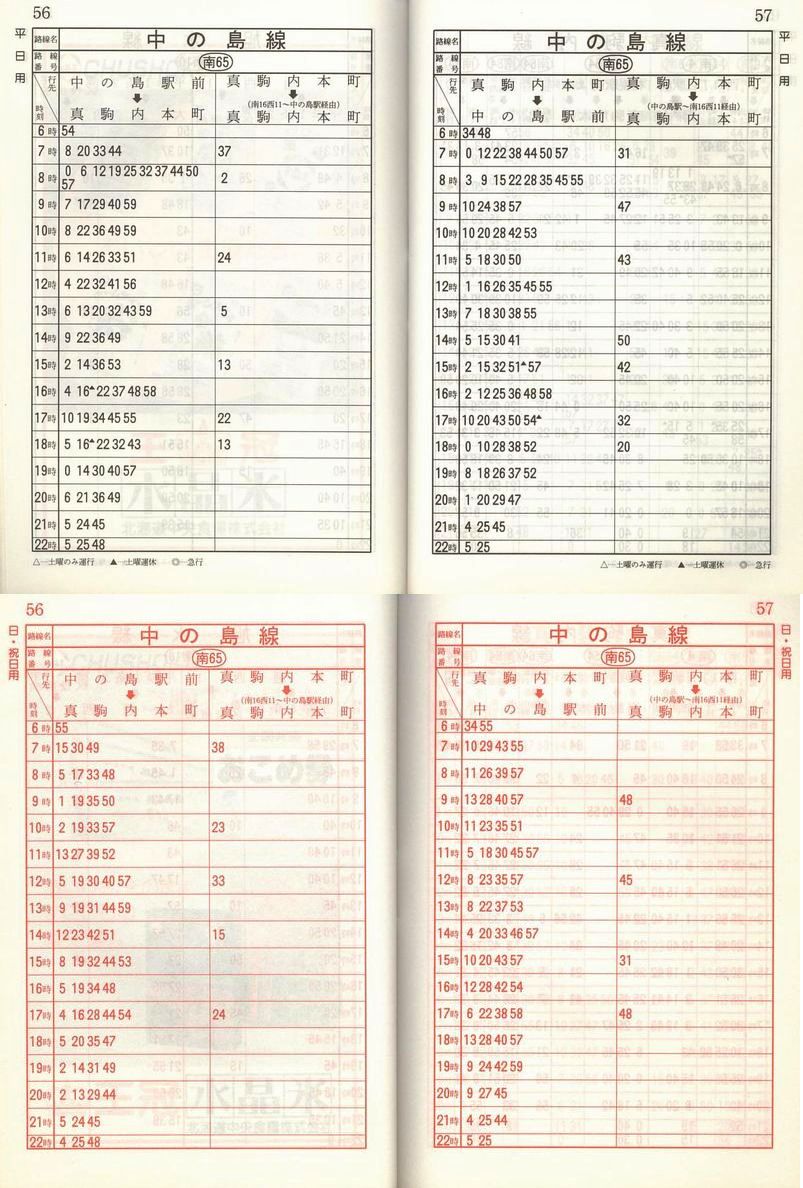 56
平日用
路線名 中の島線
路線番号 南65
行先 中の島駅前 真駒内本町
↓ ↓
(南16西11～中の島駅経由)
時刻 真駒内本町 真駒内本町
6時 54
7時 8 20 33 44 37
8時 0 6 12 19 25 32 37 44 50 2
57
9時 7 17 29 40 59
10時 8 22 36 49 59
11時 6 14 26 33 51 24
12時 4 22 32 41 56
13時 6 13 20 32 43 59 5
14時 9 22 36 49
15時 2 14 36 53 13
16時 4 16▲ 22 37 48 58
17時 10 19 34 45 55 22
18時 5 16▲ 22 32 43 13
19時 0 14 30 40 57
20時 6 21 36 49
21時 5 24 45
22時 5 25 48
△…土曜のみ運行 ▲…土曜運休 ◎…急行
57
平日用
路線名 中の島線
路線番号 南65
行先 真駒内本町 真駒内本町
↓ ↓
(中の島駅～南16西11経由)
時刻 中の島駅前 真駒内本町
6時 34 48
7時 0 12 22 38 44 50 57 31
8時 3 9 15 22 28 35 45 55
9時 10 24 38 57 47
10時 10 20 28 42 53
11時 5 18 30 50 43
12時 1 16 26 35 45 55
13時 7 18 30 38 55
14時 5 15 30 41 50
15時 2 15 32 51▲ 57 42
16時 2 12 25 36 48 58
17時 10 20 43 50 54▲ 32
18時 0 10 28 38 52 20
19時 8 18 26 37 52
20時 1 20 29 47
21時 4 25 45
22時 5 25
△…土曜のみ運行 ▲…土曜運休 ◎…急行
56
日・祝日用
路線名 中の島線
路線番号 南65
行先 中の島駅前 真駒内本町
↓ ↓
(南16西11～中の島駅経由)
時刻 真駒内本町 真駒内本町
6時 55
7時 15 30 49 38
8時 5 17 33 48
9時 1 19 35 50
10時 2 19 33 57 23
11時 13 27 39 52
12時 5 19 30 40 57 33
13時 9 19 31 44 59
14時 12 23 42 51 15
15時 8 19 32 44 53
16時 5 19 34 48
17時 4 16 28 44 54 24
18時 5 20 35 47
19時 2 14 31 49
20時 2 13 29 44
21時 5 24 45
22時 4 25 48
57
日・祝日用
路線名 中の島線
路線番号 南65
行先 真駒内本町 真駒内本町
↓ ↓
(中の島駅～南16西11経由)
時刻 中の島駅前 真駒内本町
6時 34 55
7時 10 29 43 55
8時 11 26 39 57
9時 13 28 40 57 48
10時 11 23 35 51
11時 5 18 30 45 57
12時 8 23 35 57 45
13時 8 22 37 53
14時 4 20 33 46 57
15時 10 20 43 57 31
16時 12 28 42 54
17時 6 22 38 58 48
18時 13 28 40 57
19時 9 24 42 59
20時 9 27 45
21時 4 25 44
22時 5 25